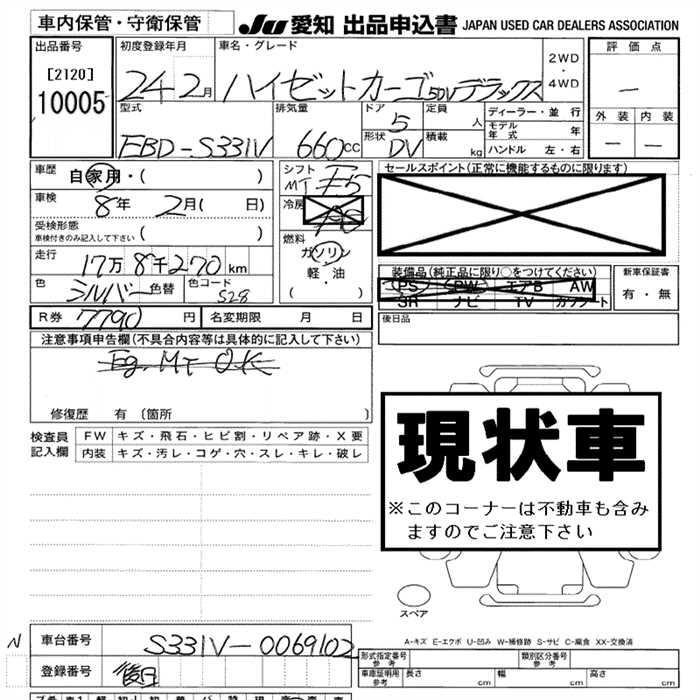 車内保管・守衛保管 JU 愛知 出品申込書 JAPAN USED CAR DEALERS ASSOCIATION
出品番号 [2120] 10005
初度登録年月 24年2月
車名・グレード ハイゼットカーゴ 5DVデラックス
2WD・4WD
評価点 —
外装 — 内装 —
型式 EBD-S331V
排気量 660cc
ドア 5 形状 DV
定員 人 積載 kg
ディーラー・並行
モデル年式 年
ハンドル 左・右
車歴 自家用・( )
車検 8年 2月( 日)
受検形態 車検付きのみ記入して下さい ( )
走行 17万8千270km
色 シルバー 色替 色コード S28
シフト MT F5
冷房
燃料 ガソリン 軽・油 ( )
セールスポイント(正常に機能するものに限ります)
装備品(純正品に限り○をつけてください)
PS PW エアB AW
SR ナビ TV カワシート
新車保証書 有・無
R券 7790円 名変期限 月 日
後日品
注意事項申告欄(不具合内容等は具体的に記入して下さい)
Eg. MT OK
修復歴 有 〔箇所 〕
検査員記入欄
FW キズ・飛石・ヒビ割・リペア跡・X要
内装 キズ・汚レ・コゲ・穴・スレ・キレ・破レ
現状車
※このコーナーは不動車も含み
ますのでご注意下さい
スペア
A-キズ E-エクボ U-凹み W-補修跡 S-サビ C-腐食 XX-交換済
N 車台番号 S331V-0069102
登録番号 後日
形式指定番号 参考 類別区分番号 参考
車庫証明用 参考 長さ cm 幅 cm 高さ cm